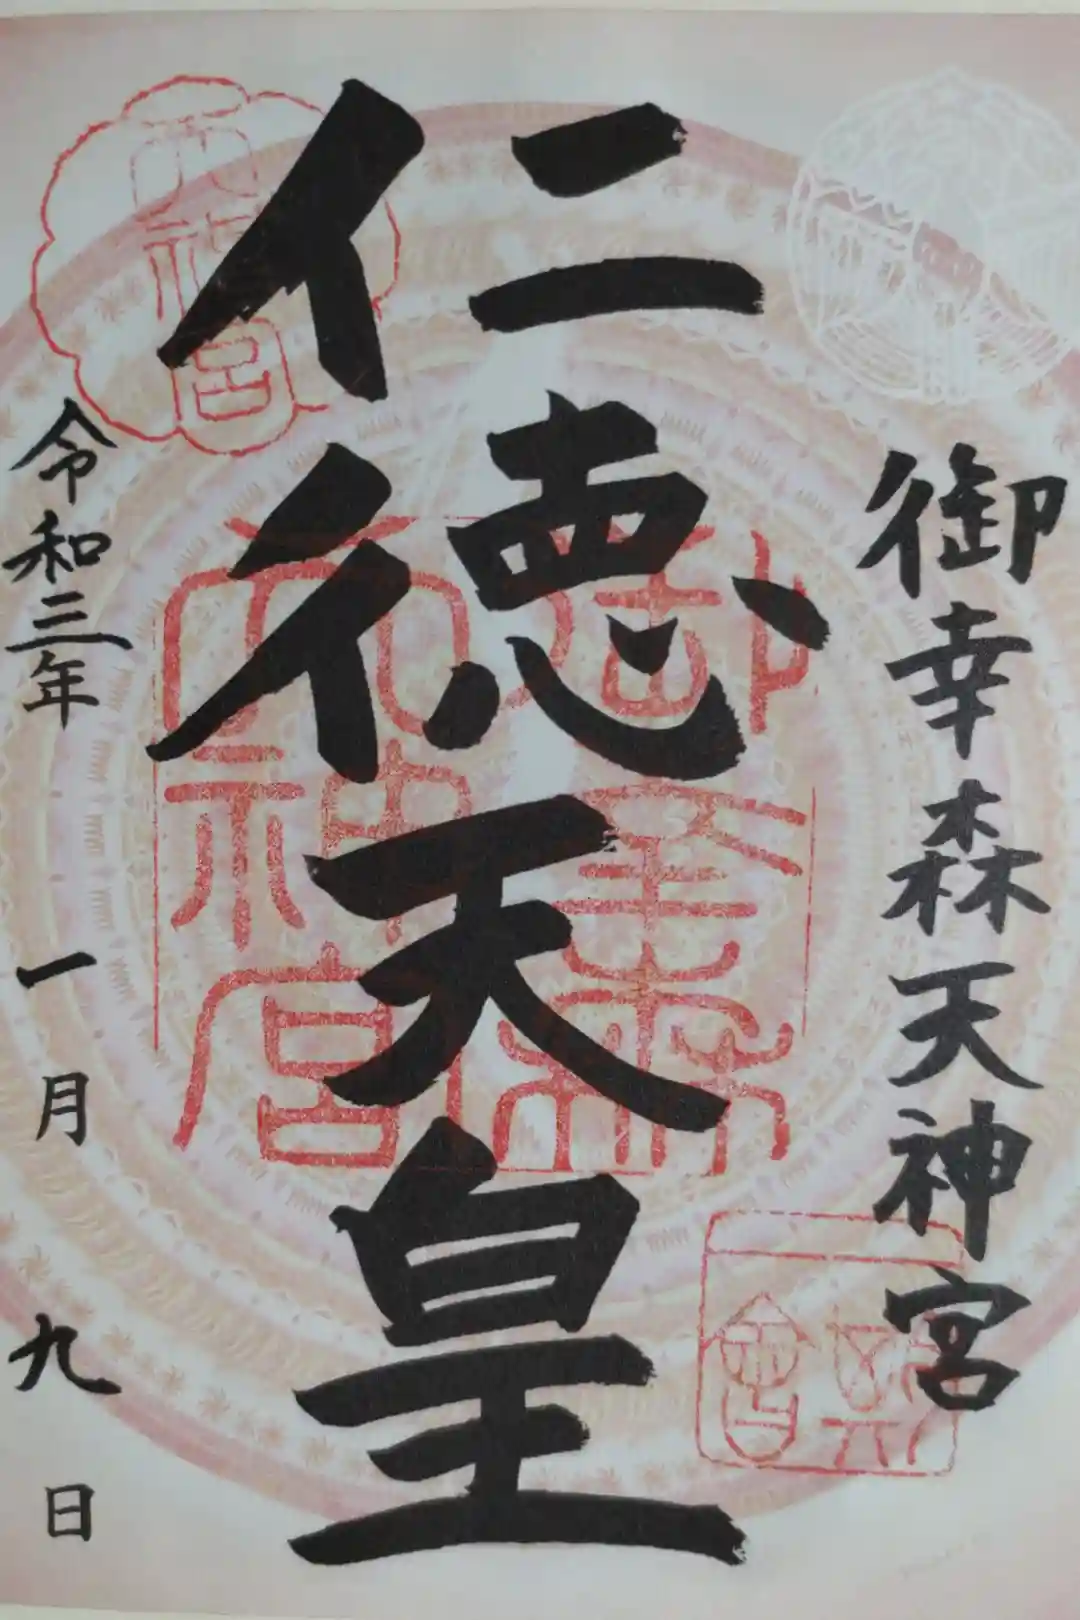 御幸森天神宮
仁徳天皇
令和三年一月九日
御幸森
天神宮